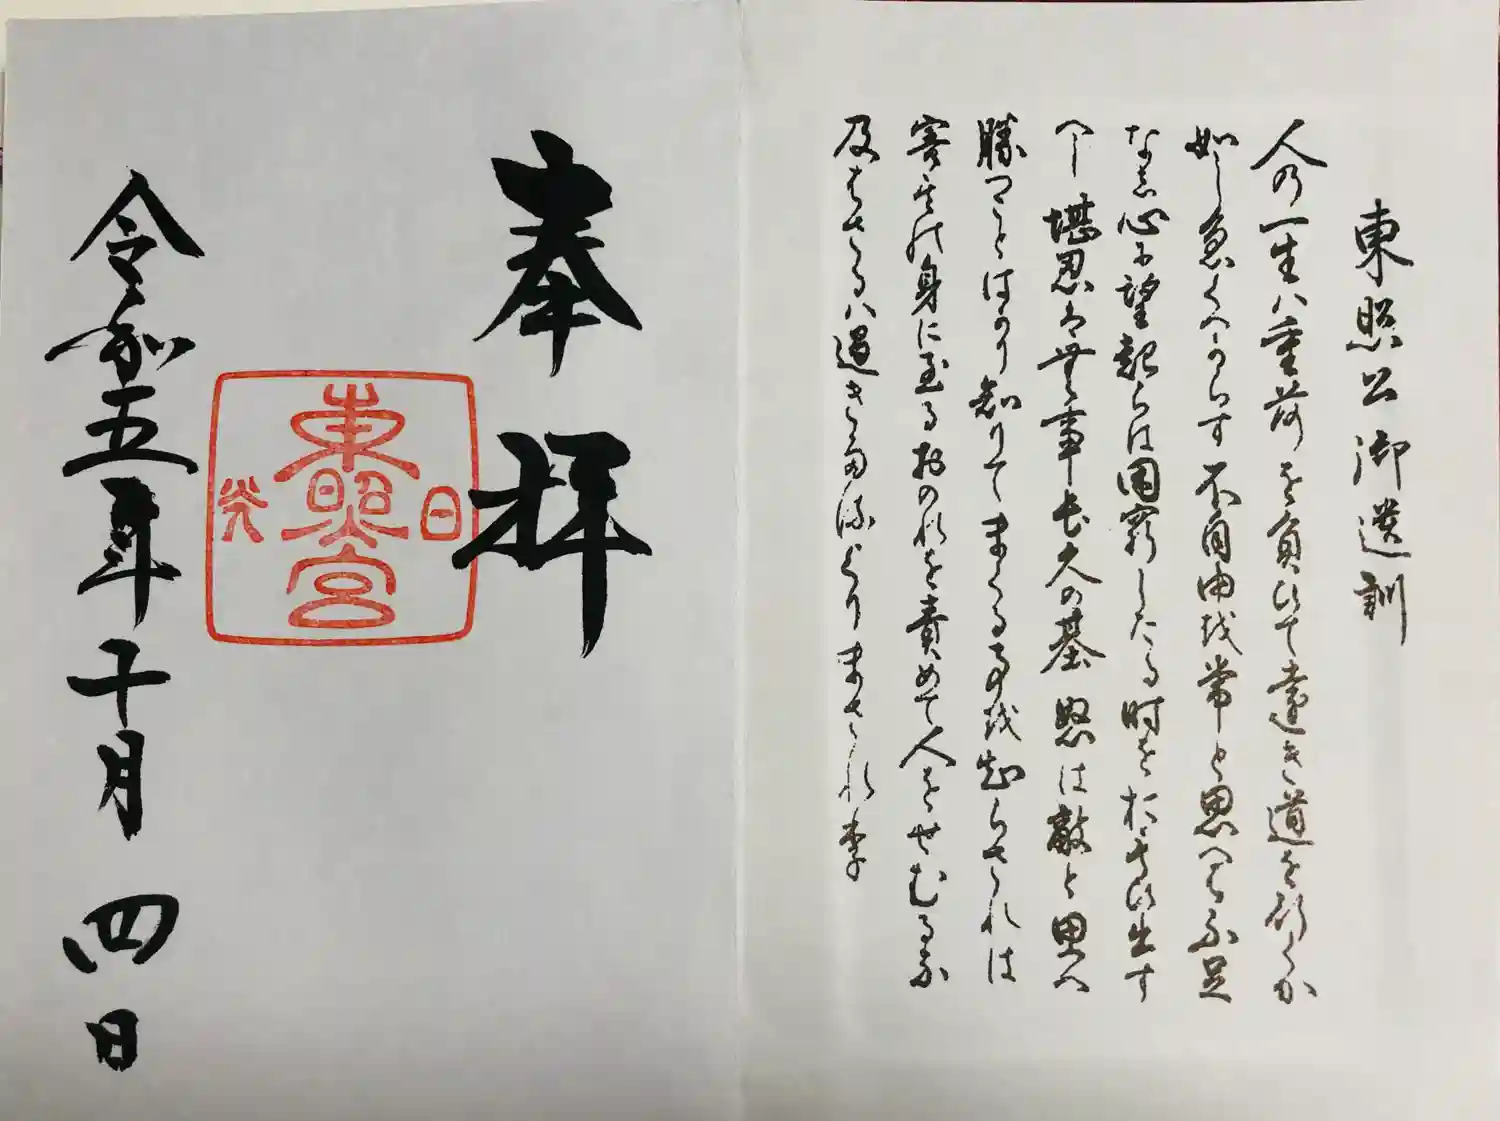 東照公御遺訓
人の一生ハ重荷を負ひて遠き道を行くか
如し急くへからす不自由を常と思へは不足
なし心に望起らは困窮したる時を於もひ出す
へし堪忍は無事長久の基怒は敵と思へ
勝つことはかり知りてまくる事を知らされは
害其の身に至るおのれを責めて人をせむるな
及はさるハ過きたるよりまされり
奉拝
日光
東照宮
令和五年十月四日